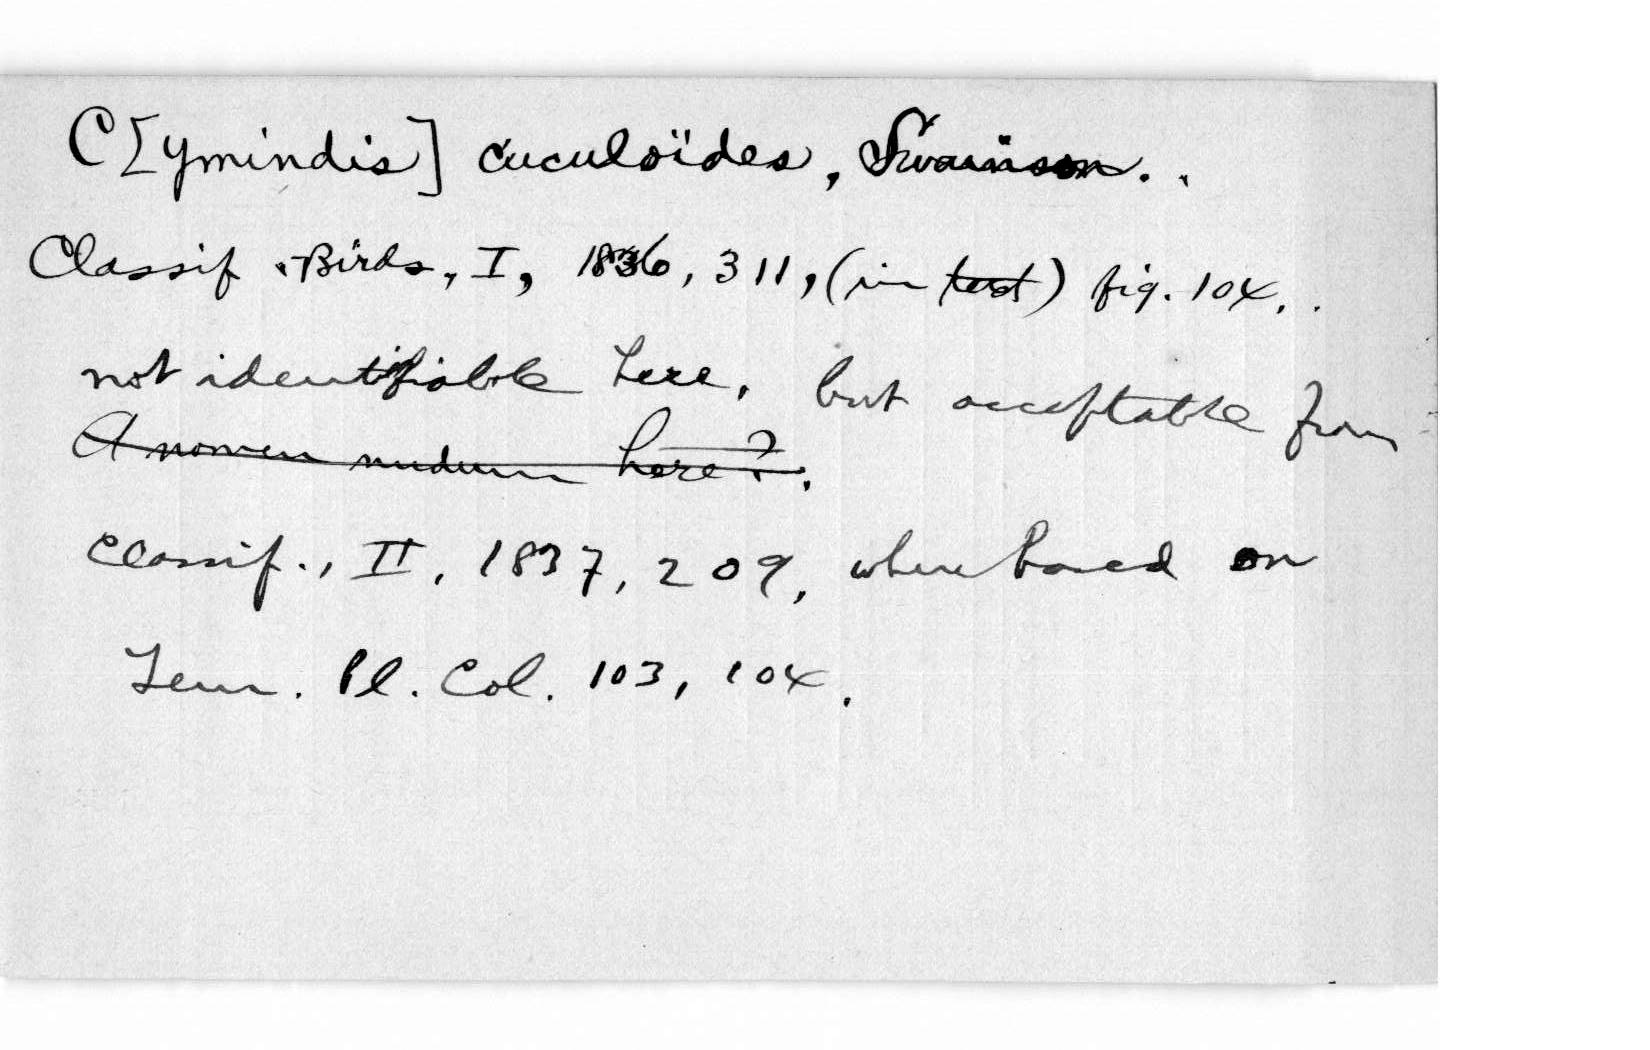 C[ymindis] cuculoïdes, Swainson.
Classif. Birds, I, 1836, 311, (in text) fig. 104.
not identifiable here, but acceptable from
A nomen nudum here?.
Classif., II, 1837, 209, where based on
Tem. Pl. Col. 103, 104.